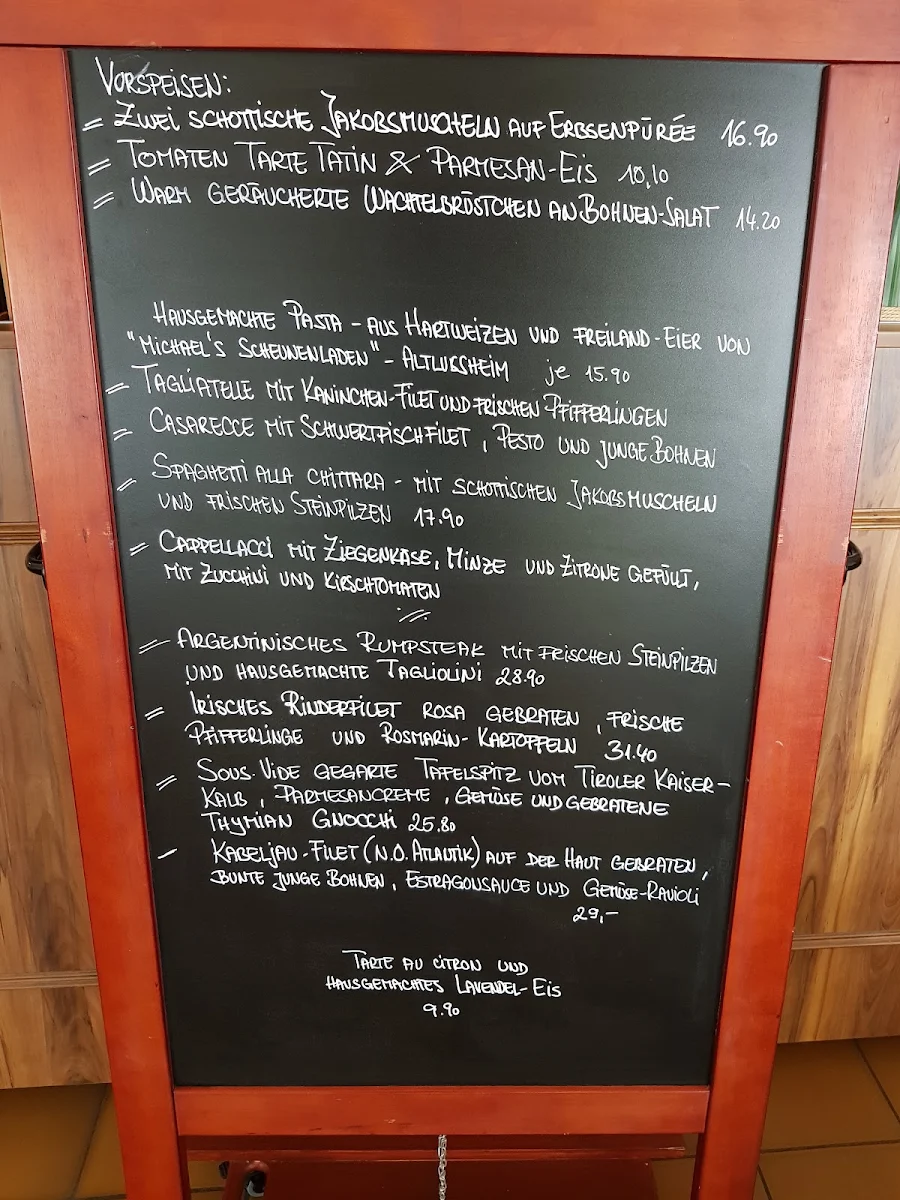 VORSPEISEN:
= ZWEI SCHOTTISCHE JAKOBSMUSCHELN AUF ERBSENPÜRÉE 16.90
= TOMATEN TARTE TATIN & PARMESAN-EIS 10,10
= WARM GERÄUCHERTE WACHTELBRÜSTCHEN AN BOHNEN-SALAT 14.20
HAUSGEMACHTE PASTA - AUS HARTWEIZEN UND FREILAND-EIER VON
"MICHAEL'S SCHEUNENLADEN" - ALTLUSSHEIM je 15.90
= TAGLIATELLE MIT KANINCHEN-FILET UND FRISCHEN PFIFFERLINGEN
= CASARECCE MIT SCHWERTFISCHFILET, PESTO UND JUNGE BOHNEN
= SPAGHETTI ALLA CHITTARA - MIT SCHOTTISCHEN JAKOBSMUSCHELN
UND FRISCHEN STEINPILZEN 17.90
= CAPPELLACCI MIT ZIEGENKÄSE, MINZE UND ZITRONE GEFÜLLT,
MIT ZUCCHINI UND KIRSCHTOMATEN
= ARGENTINISCHES RUMPSTEAK MIT FRISCHEN STEINPILZEN
UND HAUSGEMACHTE TAGLIOLINI 28.90
= IRISCHES RINDERFILET ROSA GEBRATEN, FRISCHE
PFIFFERLINGE UND ROSMARIN-KARTOFFELN 31.40
= SOUS-VIDE GEGARTE TAFELSPITZ VOM TIROLER KAISER-
KALB, PARMESANCREME, GEMÜSE UND GEBRATENE
THYMIAN GNOCCHI 25.80
- KABELJAU-FILET (N.O. ATLANTIK) AUF DER HAUT GEBRATEN,
BUNTE JUNGE BOHNEN, ESTRAGONSAUCE UND GEMÜSE-RAVIOLI
29,-
TARTE AU CITRON UND
HAUSGEMACHTES LAVENDEL-EIS
9.90